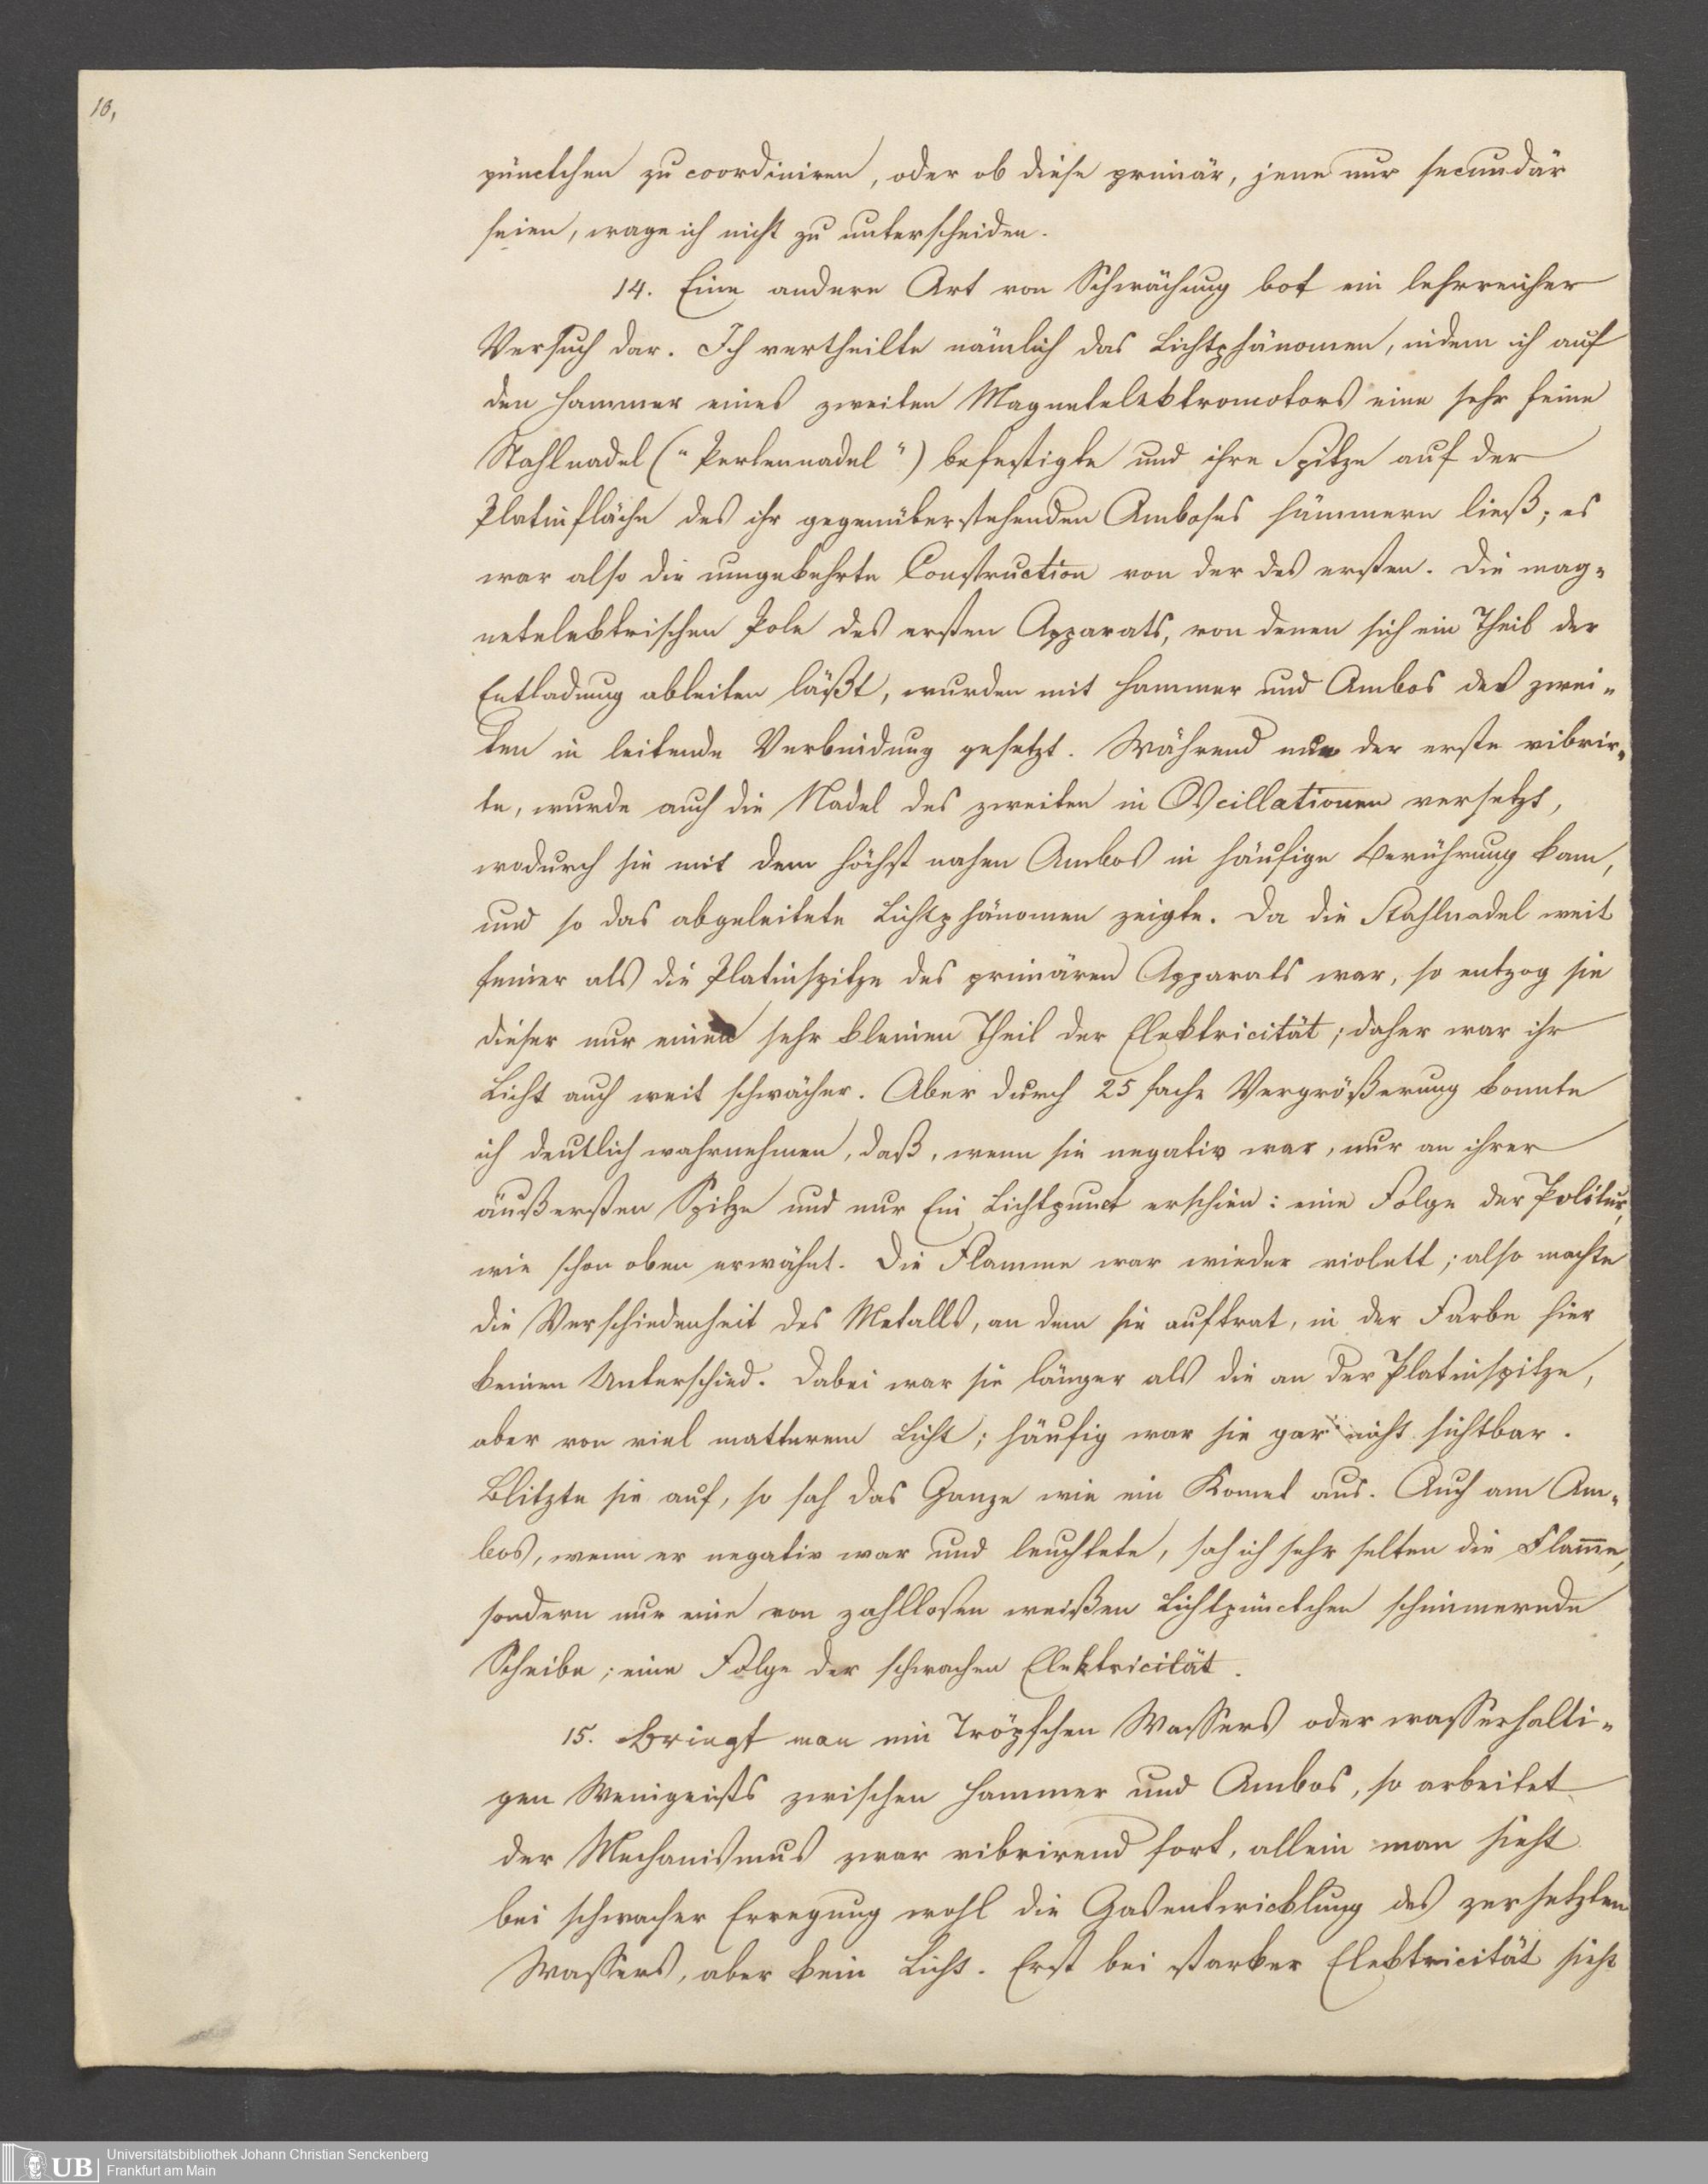 10,
pünctchen zu coordiniren, oder ob diese primär, jene nur secundär
seien, wage ich nicht zu unterscheiden.
14. Eine andere Art von Schwächung bot ein lehrreicher
Versuch dar. Ich vertheilte nämlich das Lichtphänomen, indem ich auf
den Hammer eines zweiten Magnetelektromotors eine sehr feine
Stahlnadel („Perlennadel") befestigte und ihre Spitze auf der
Platinfläche des ihr gegenüberstehenden Amboses hämmern ließ; es
war also die umgekehrte Construction von der des ersten. Die mag-
netelektrischen Pole des ersten Apparats, von denen sich ein Theil der
Entladung ableiten läßt, wurden mit Hammer und Ambos des zwei-
ten in leitende Verbindung gesetzt. Während nun der erste vibrir-
te, wurde auch die Nadel des zweiten in Oscillationen versetzt,
wodurch sie mit dem höchst nahen Ambos in häufige Berührung kam,
und so das abgeleitete Lichtphänomen zeigte. Da die Stahlnadel weit
feiner als die Platinspitze des primären Apparats war, so entzog sie
dieser nur einen sehr kleinen Theil der Elektricität; daher war ihr
Licht auch weit schwächer. Aber durch 25 fache Vergrößerung konnte
ich deutlich wahrnehmen, daß, wenn sie negativ war, nur an ihrer
äußersten Spitze und nur Ein Lichtpunct erschien: eine Folge der Politur,
wie schon oben erwähnt. Die Flamme war wieder violett; also machte
die Verschiedenheit des Metalls, an dem sie auftrat, in der Farbe hier
keinen Unterschied. Dabei war sie länger als die an der Platinspitze,
aber von viel matterem Licht; häufig war sie gar nicht sichtbar.
Blitzte sie auf, so sah das Ganze wie ein Komet aus. Auch am Am-
bos, wenn er negativ war und leuchtete, sah ich sehr selten die Flam̅e,
sondern nur eine von zahllosen weißen Lichtpünctchen schimmernde
Scheibe; eine Folge der schwachen Elektricität.
15. Bringt man ein Tröpfchen Wassers oder wasserhalti-
gen Weingeists zwischen Hammer und Ambos, so arbeitet
der Mechanismus zwar vibrirend fort, allein man sieht
bei schwacher Erregung wohl die Gasentwicklung des zersetzten
Wassers, aber kein Licht. Erst bei starker Elektricität sieht
UB
Universitätsbibliothek Johann Christian Senckenberg
Frankfurt am Main